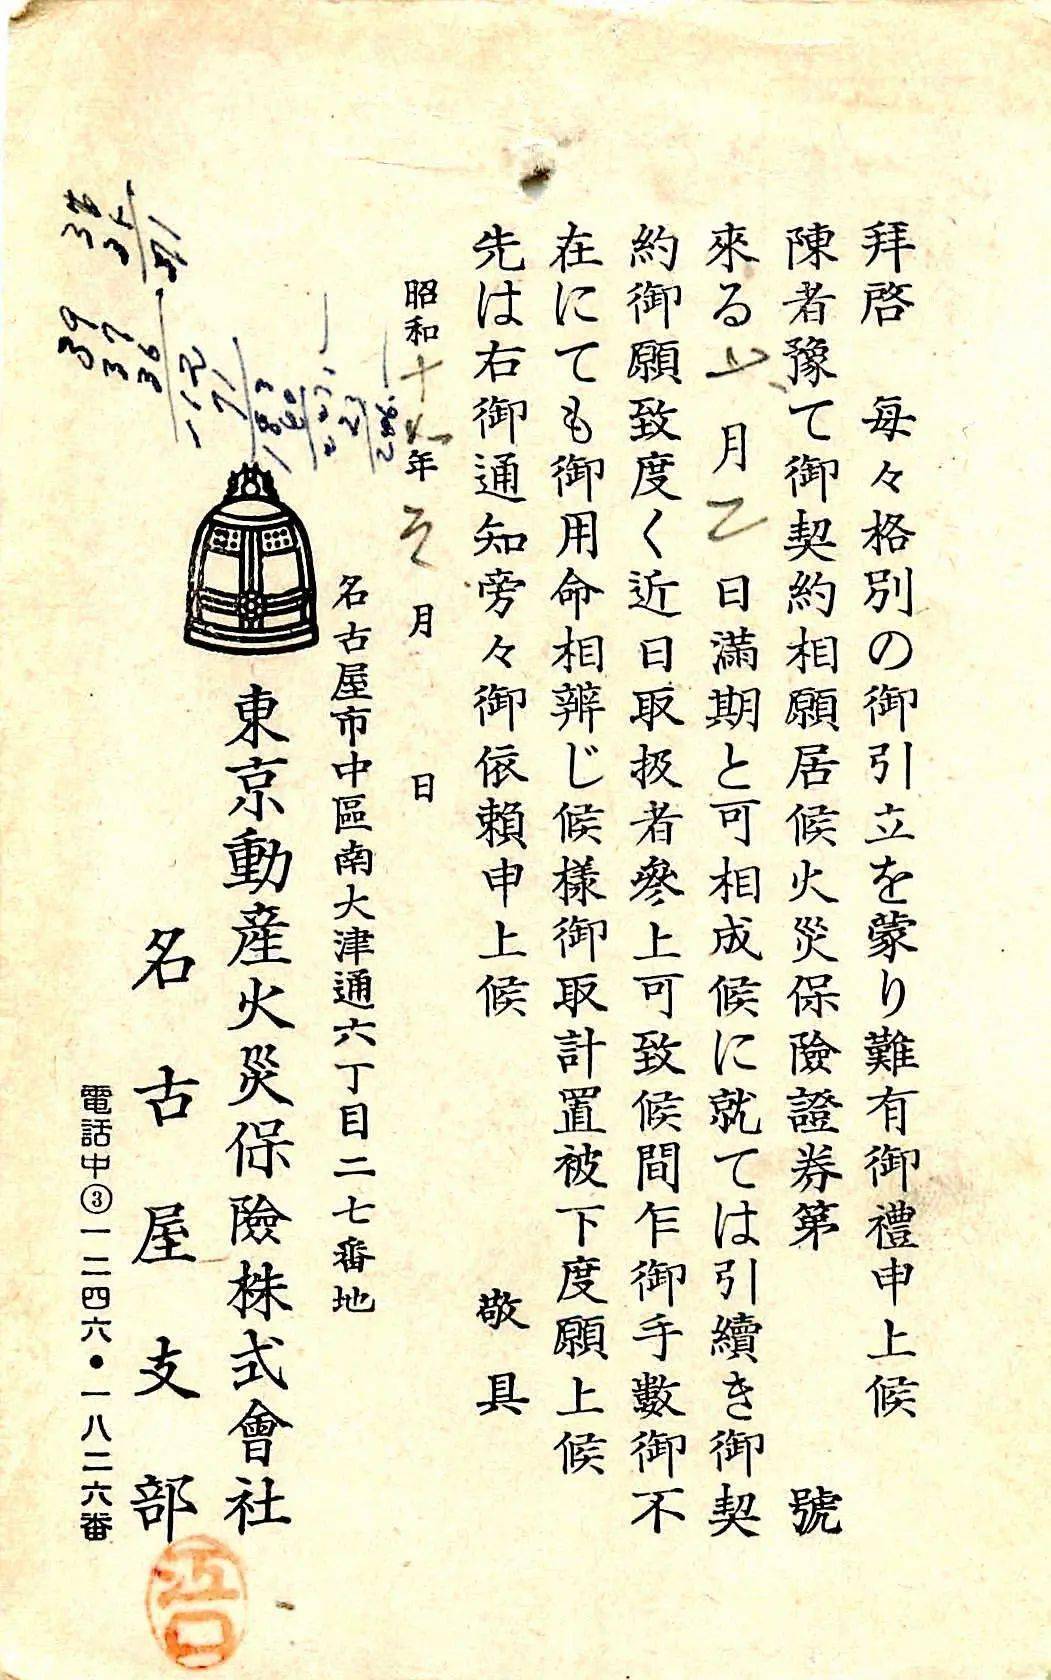 拜啓　每々格別の御引立を蒙り難有御禮申上候
陳者豫て御契約相願居候火災保險證券第　　　　號
來る　月　日滿期と可相成候に就ては引續き御契
約御願致度く近日取扱者參上可致候間乍御手數御不
在にても御用命相辨じ候樣御取計置被下度願上候
先は右御通知旁々御依賴申上候　　　　敬具
昭和十　年　月　日
名古屋市中區南大津通六丁目二七番地
東京動產火災保險株式會社
名古屋支部
電話中③一二四六・一八二六番
江口